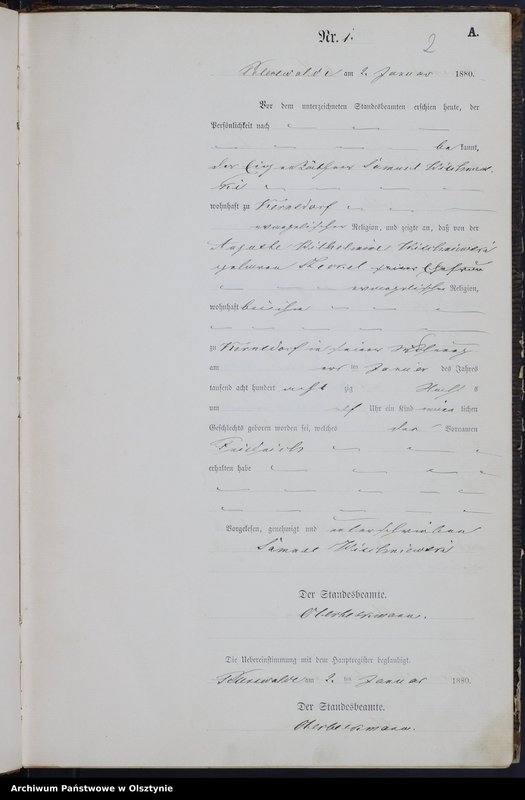 Nr. 1.
2
A.
am 2. Januar 1880.
Vor dem unterzeichneten Standesbeamten erschien heute, der
Persönlichkeit nach
be kannt,
der Eigenkäthner Samuel
wohnhaft zu Körnsdorf
evangelischer Religion, und zeigte an, daß von der
Auguste Wilhelmine Wischniewski
geboren seiner Ehefrau
evangelischer Religion,
wohnhaft bei ihm
zu Körnsdorf in seiner Wohnung
am ten Januar des Jahres
tausend acht hundert acht zig Nach s
um elf Uhr ein Kind männ lichen
Geschlechts geboren worden sei, welches den Vornamen
Friedrich
erhalten habe
Vorgelesen, genehmigt und unterschrieben
Samuel Wischniewski
Der Standesbeamte.
Die Uebereinstimmung mit dem Hauptregister beglaubigt.
am 2. ten Januar 1880.
Der Standesbeamte.
Archiwum Państwowe w Olsztynie